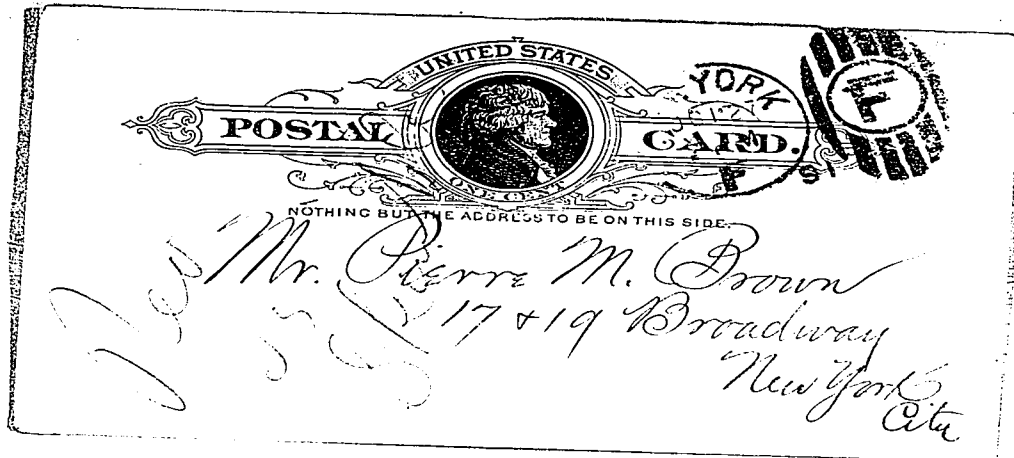 UNITED STATES
POSTAL CARD.
ONE CENT
NOTHING BUT THE ADDRESS TO BE ON THIS SIDE.
YORK
Mr. Pierre M. Brown
17 & 19 Broadway
New York
City